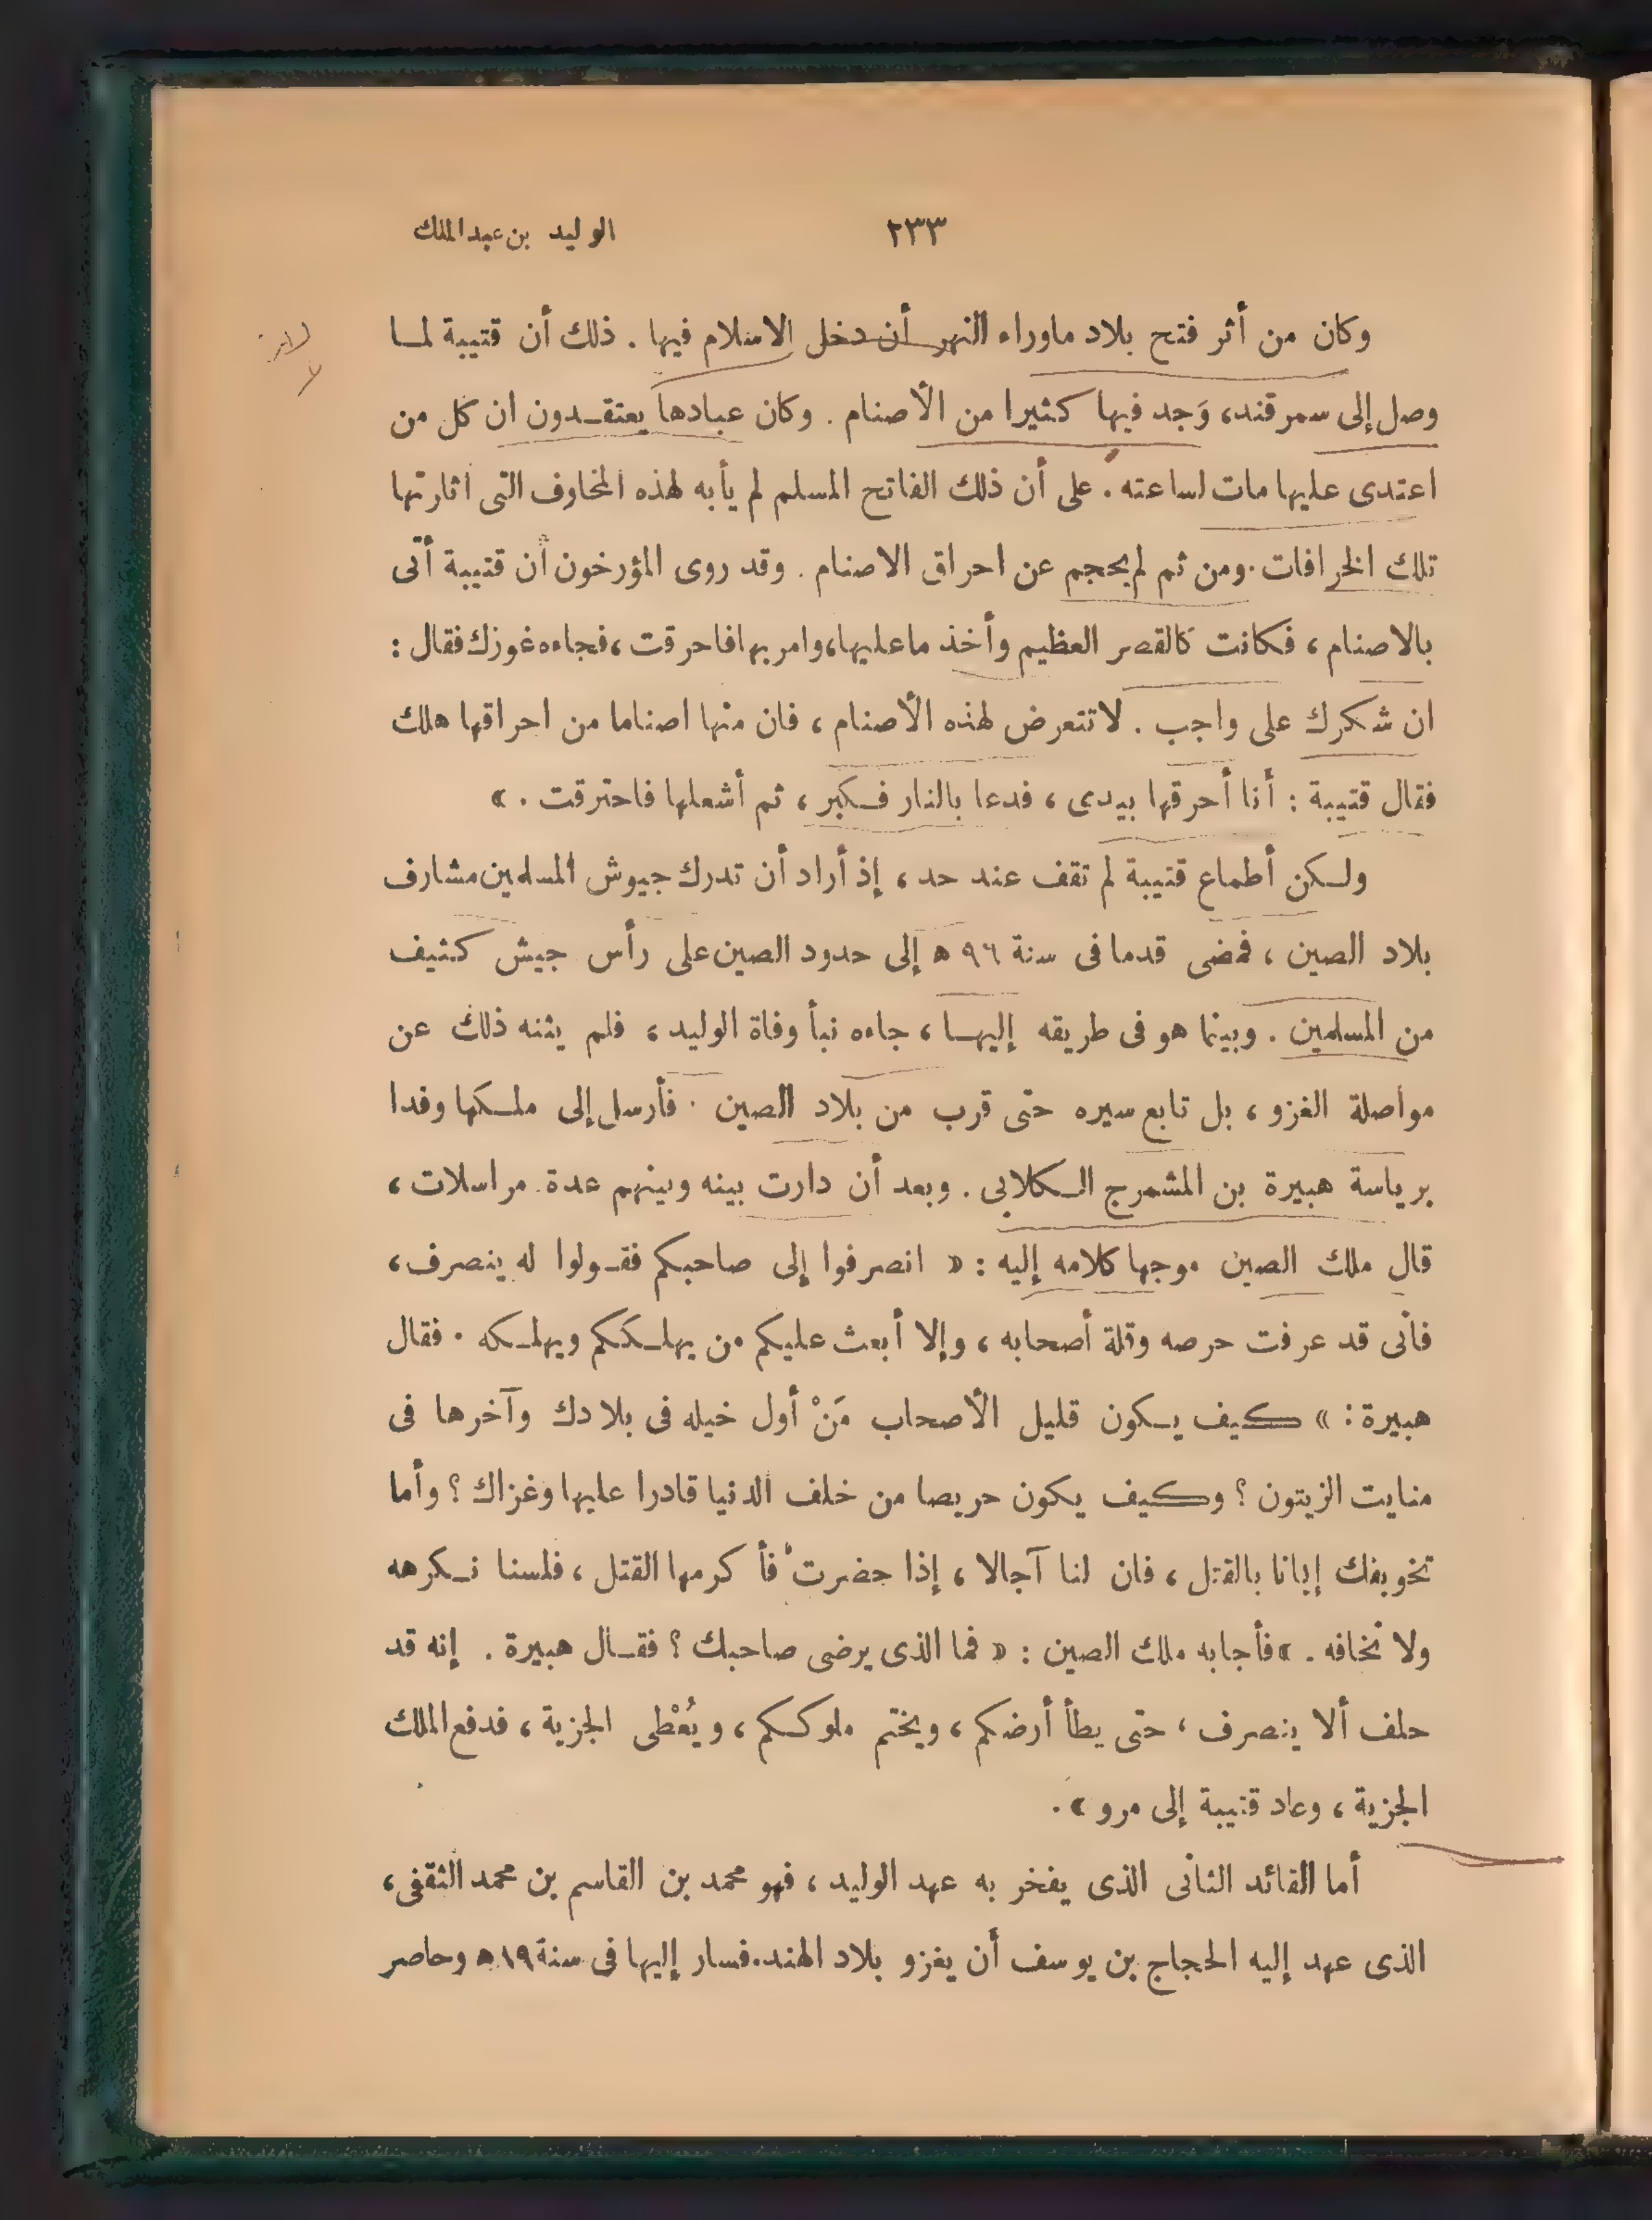 ٢٣٣ الوليد بن عبد الملك
وكان من أثر فتح بلاد ماوراء النهر أن دخل الاسلام فيها . ذلك أن قتيبة لما
وصل إلى سمرقند، وَجد فيها كثيرا من الأصنام . وكان عبادها يعتقدون ان كل من
اعتدى عليها مات لساعته . على أن ذلك الفاتح المسلم لم يأبه لهذه المخاوف التى اثارتها
تلك الخرافات . ومن ثم لم يحجم عن احراق الاصنام . وقد روى المؤرخون أن قتيبة أتى
بالاصنام ، فكانت كالقصر العظيم وأخذ ماعليها، وامر بها فاحرقت ، فجاءه غوزك فقال :
ان شكرك على واجب . لاتتعرض لهذه الأصنام ، فان منها اصناما من احراقها هلك
فقال قتيبة : أنا أحرقها بيدى ، فدعا بالنار فكبر ، ثم أشعلها فاحترقت . »
ولكن أطماع قتيبة لم تقف عند حد ، إذ أراد أن تدرك جيوش المسلمين مشارف
بلاد الصين ، فمضى قدما فى سنة ٩٦ ه إلى حدود الصين على رأس جيش كثيف
من المسلمين . وبينما هو فى طريقه إليها ، جاءه نبأ وفاة الوليد ، فلم يثنه ذلك عن
مواصلة الغزو ، بل تابع سيره حتى قرب من بلاد الصين . فأرسل إلى ملكها وفدا
برياسة هبيرة بن المشمرج الكلابى . وبعد أن دارت بينه وبينهم عدة مراسلات ،
قال ملك الصين موجها كلامه إليه : « انصرفوا إلى صاحبكم فقولوا له ينصرف ،
فأنى قد عرفت حرصه وقلة أصحابه ، وإلا أبعث عليكم من يهلككم ويهلكه . فقال
هبيرة : » كيف يكون قليل الأصحاب مَنْ أول خيله فى بلادك وآخرها فى
منابت الزيتون ؟ وكيف يكون حريصا من خلف الدنيا قادرا عليها وغزاك ؟ وأما
تخويفك إيانا بالقتل ، فان لنا آجالا ، إذا حضرت فأكرمها القتل ، فلسنا نكرهه
ولا نخافه . » فأجابه ملك الصين : « فما الذى يرضى صاحبك ؟ فقال هبيرة . إنه قد
حلف ألا ينصرف ، حتى يطأ أرضكم ، ويختم ملوككم ، ويُعْطى الجزية ، فدفع الملك
الجزية ، وعاد قتيبة إلى مرو » .
أما القائد الثانى الذى يفخر به عهد الوليد ، فهو محمد بن القاسم بن محمد الثقفى ،
الذى عهد إليه الحجاج بن يوسف أن يغزو بلاد الهند . فسار إليها فى سنة ١٩ ه وحاصر